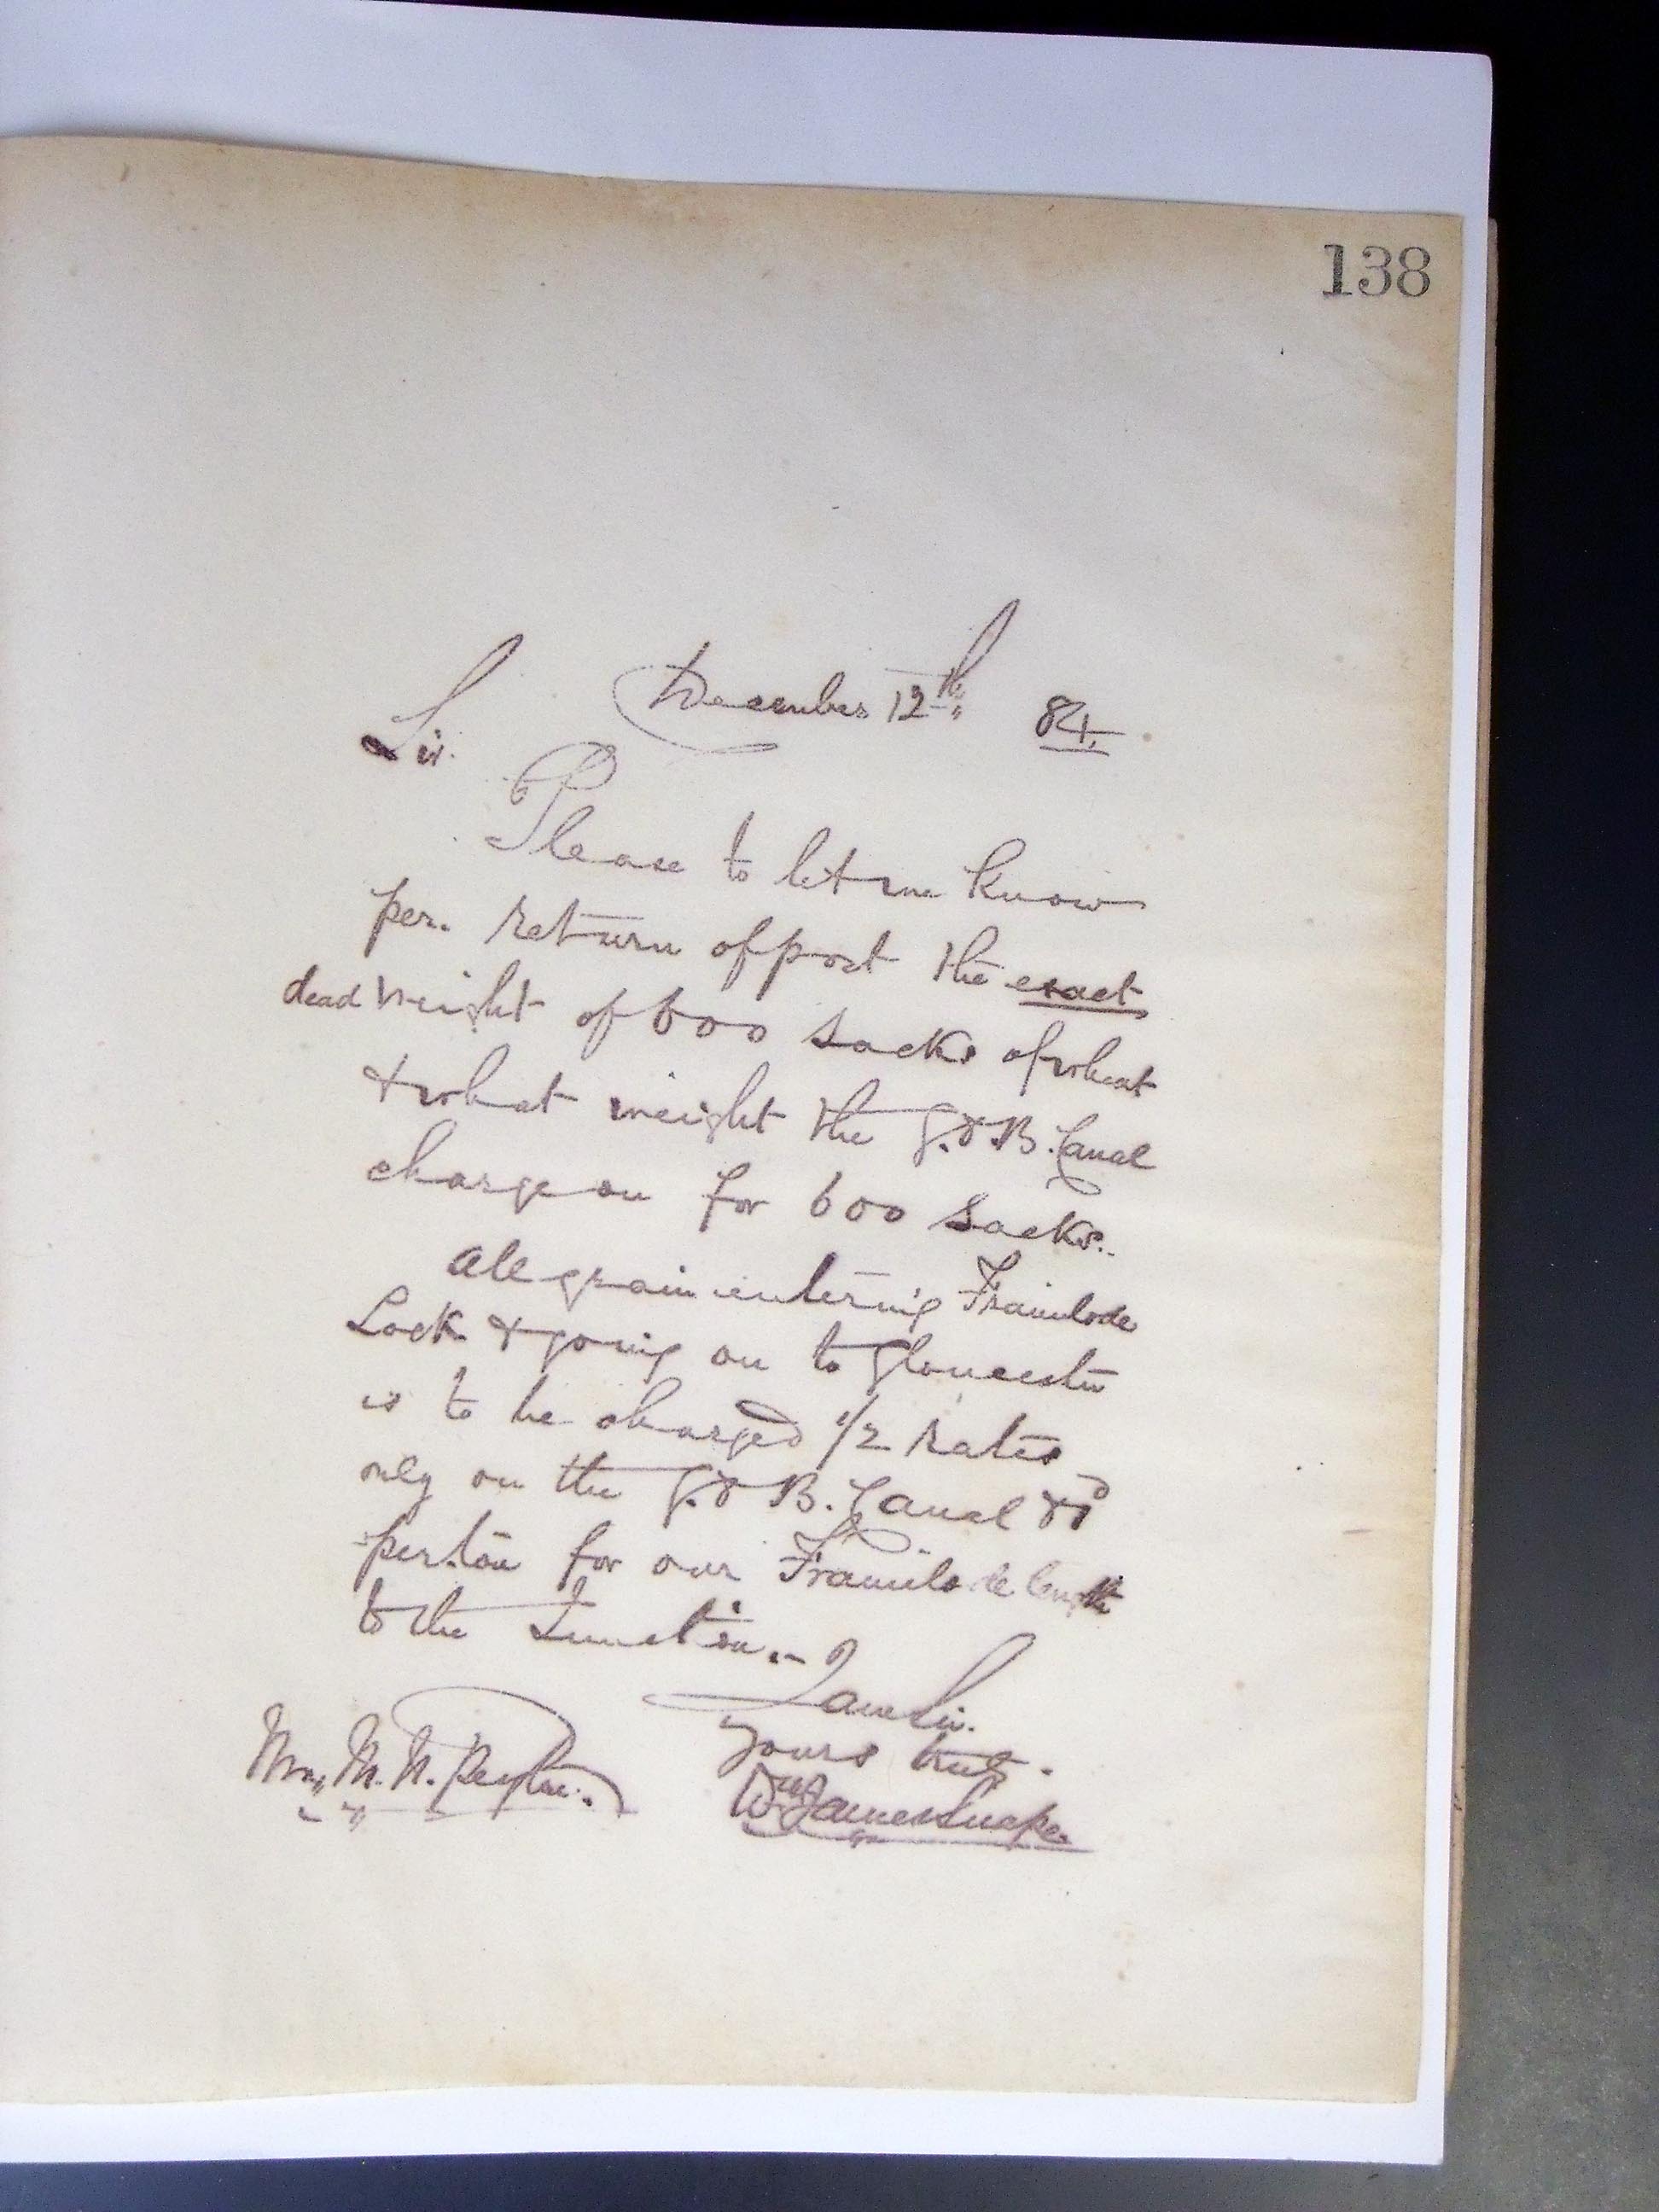 138
December 12th 84.
Sir.
Please to let me know
per. return of post the exact
dead weight of 600 sacks of wheat
& what weight the G. & B. Canal
charge on for 600 sacks.
All grain entering Framilode
Lock & going on to Gloucester
is to be charged 1/2 rates
only on the G. & B. Canal & 1d
per. ton for our Framilode length
to the Junction.-
I am Sir.
yours truly.
Wm James Snape.